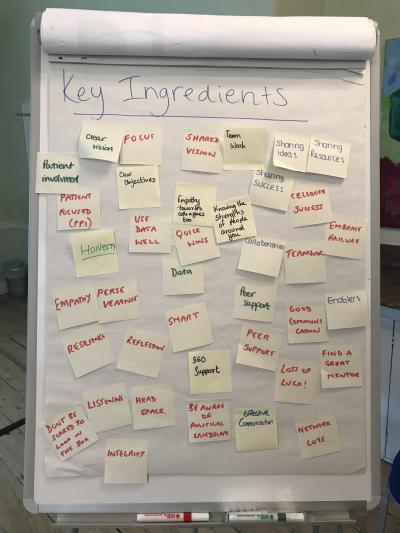 Key Ingredients
Clear
vision
FOCUS
SHARED
VISION
Team
Work
Sharing
ideas
Sharing
Resources
Patient
involvement
PATIENT
FOCUSED
(PPI)
Clear
Objectives
Sharing
Success
CELEBRATE
SUCCESS
Empathy
towards
colleagues
too
Knowing the
strengths
of people
around
you
HONESTY
USE
DATA
WELL
QUICK
WINS
Collaboration
TEAMWORK
EMBRACE
FAILURE
Data
EMPATHY
PERSE
VERANCE
SMART
Peer
support
GOOD
COMMUNI
CATION
Enablers
RESILIENCE
REFLECTION
360
Support
PEER
SUPPORT
LOTS OF
LUCK!
FIND A
GREAT
MENTOR
DON'T BE
SCARED TO
LOOK IN
THE BOX
LISTENING
HEAD
SPACE
BE AWARE
OF
POLITICAL
LANDSCAPE
Effective
Communication
NETWORK
LOTS
INTEGRITY